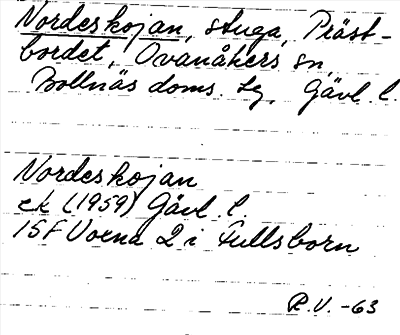 Nordeskojan, stuga, Präst-
bordet, Ovanåkers sn,
Bollnäs doms. tg, Gävl. l.
Nordeskojan
ek (1959) Gävl. l.
15F Voxna 2 i Fullsborn
R.V. -63